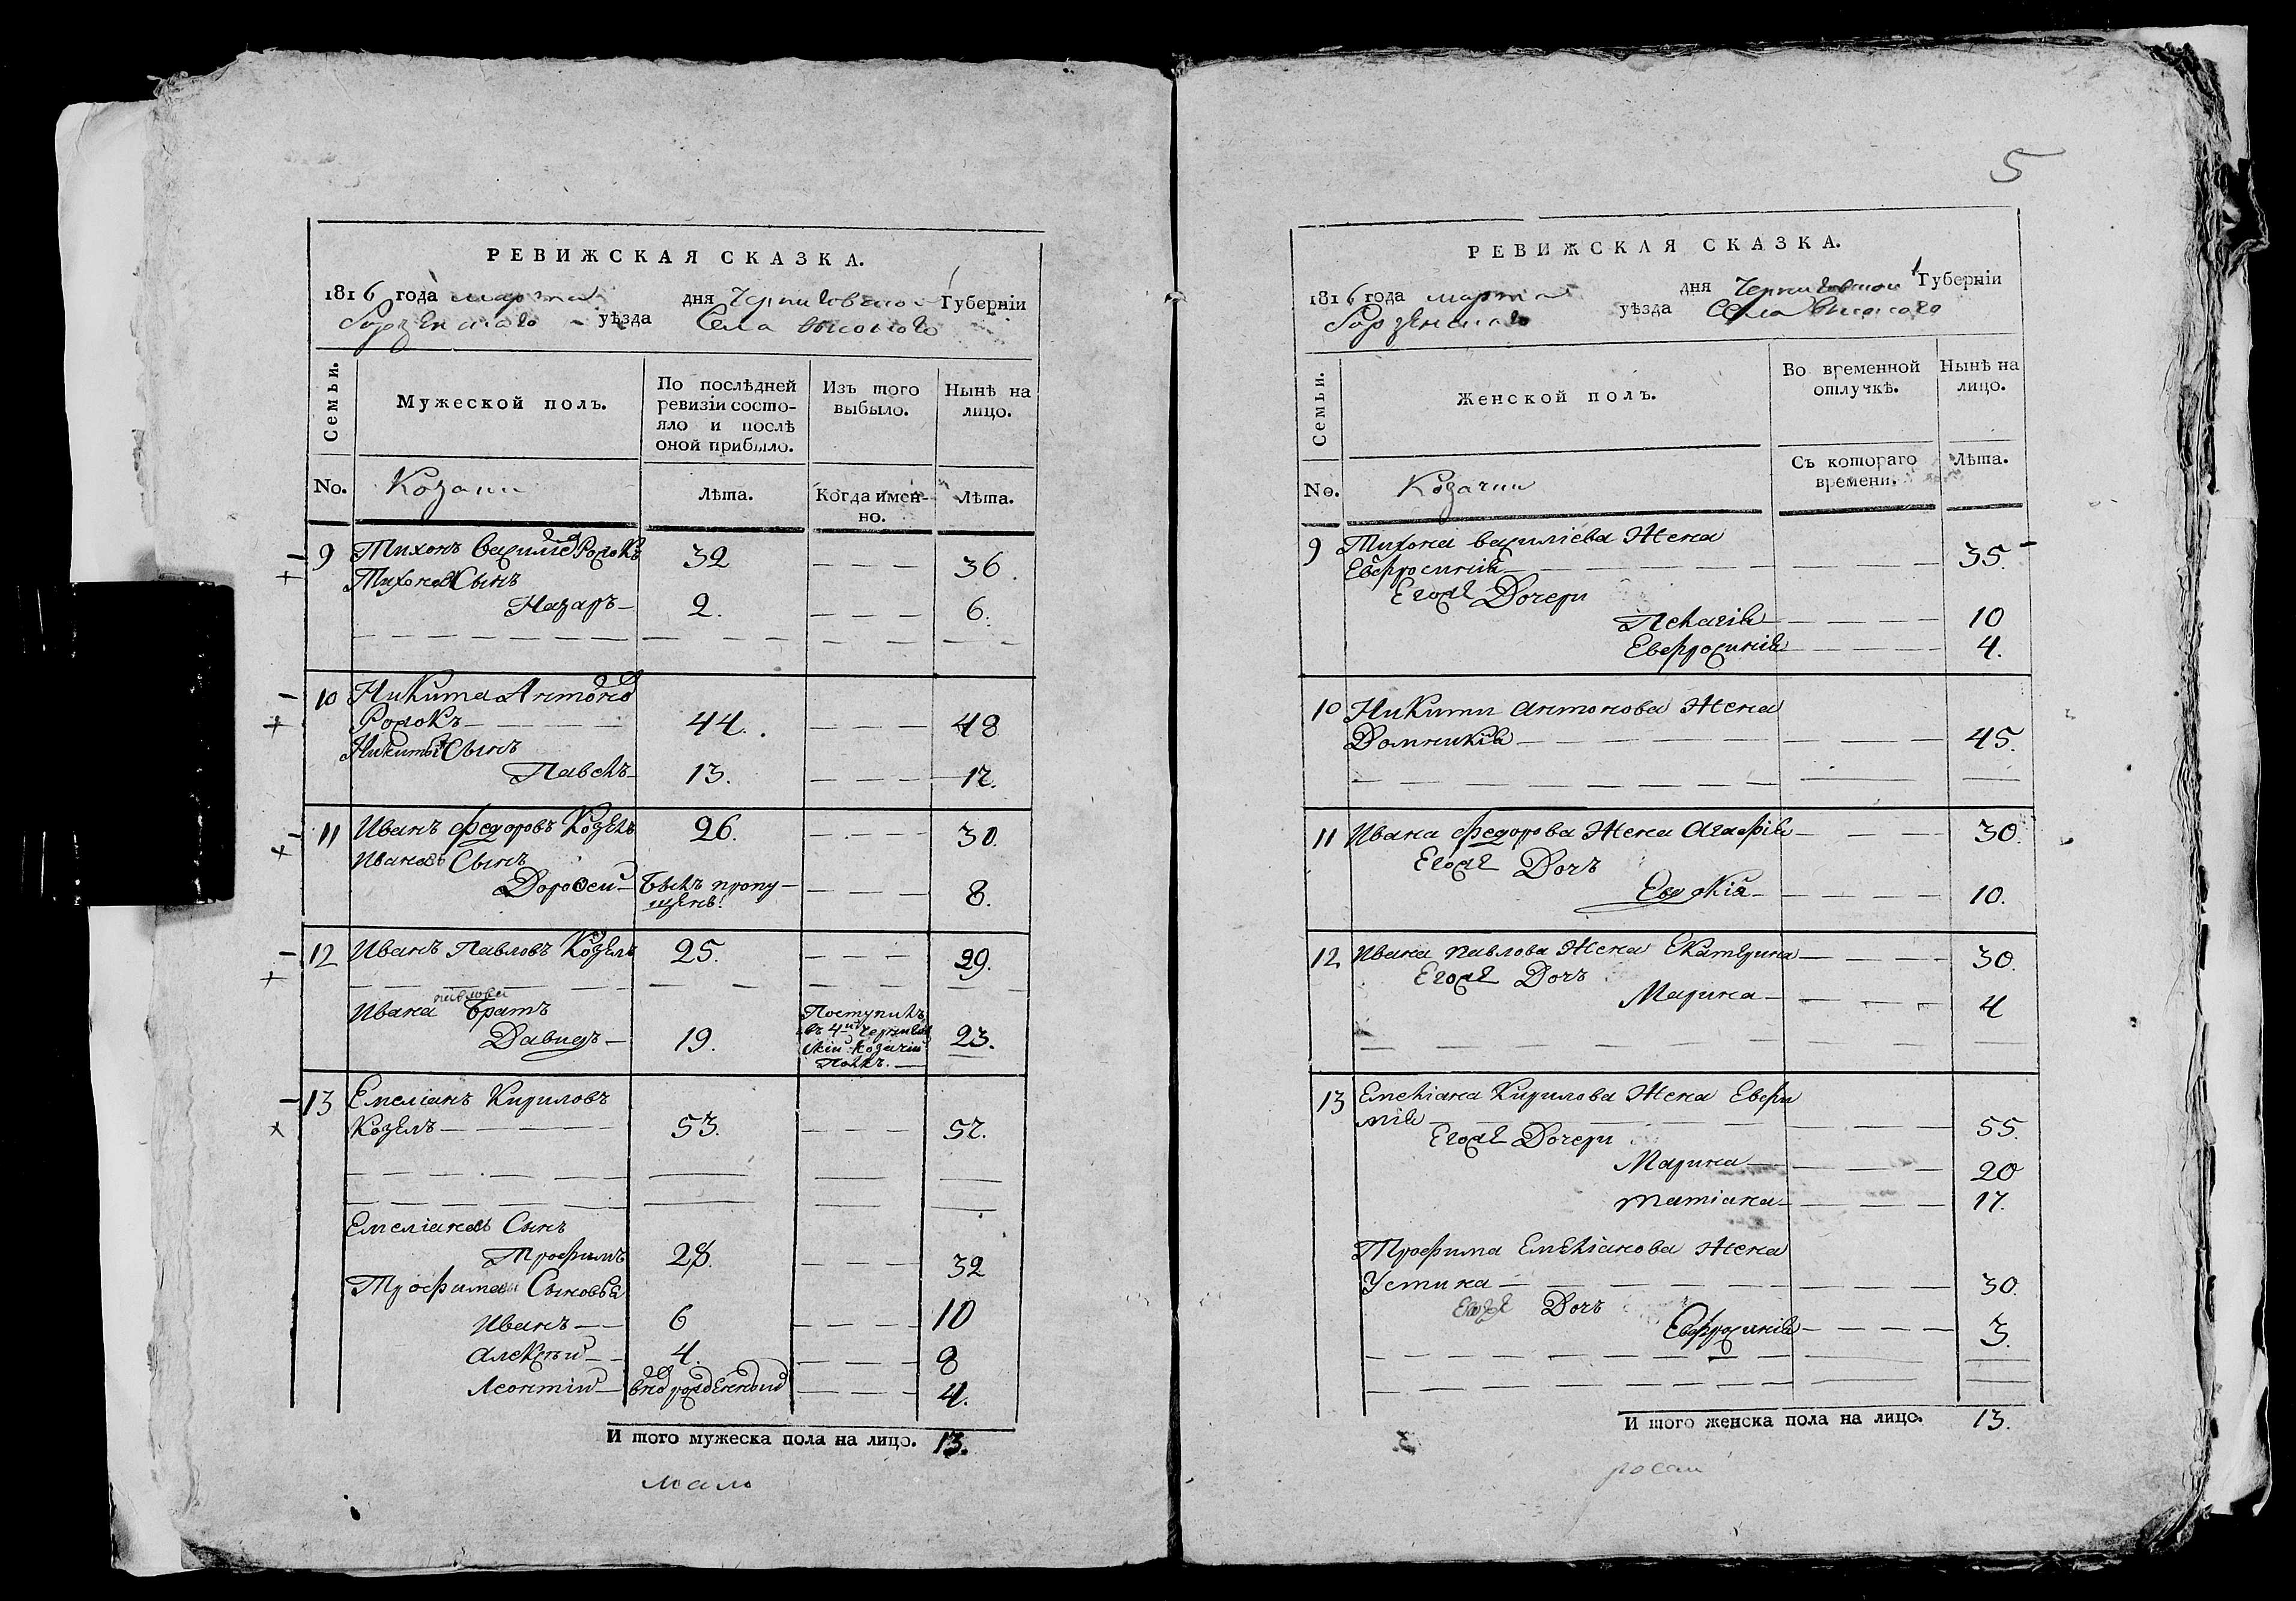 РЕВИЖСКАЯ СКАЗКА.
1816 года марта дня Черниговской Губерніи
уѣзда Села высокого
Семьи.
Мужеской полъ.
По послѣдней ревизіи состояло и послѣ оной прибыло.
Изъ того выбыло.
Нынѣ на лицо.
No.
Козаки
Лѣта.
Когда именно.
Лѣта.
9 Тихонъ Василіевъ 32 36.
Тихоновъ Сынъ
Назаръ 2. 6.
10 Никита Антоновъ
44. 48
Никитинъ Сынъ
Павелъ 13. 17.
11 Иванъ Федоровъ Козелъ 26. 30.
Ивановъ Сынъ
Дорофей Былъ пропущенъ. 8.
12 Иванъ Павловъ Козелъ 25. 29.
Ивана павлова Братъ
Давидъ 19. Поступилъ въ 4й Черниговскій Козачій Полкъ. 23.
13 Емеліанъ Кириловъ
Козелъ 53. 57.
Емеліановъ Сынъ
Трофимъ 28. 32
Трофима Сыновья
Иванъ 6 10
Алексѣй 4. 8
Леонтій 4.
И того мужеска пола на лицо. 13.
мало
5
РЕВИЖСКАЯ СКАЗКА.
1816 года марта дня Черниговской Губерніи
уѣзда Села высокого
Семьи.
Женской полъ.
Во временной отлучкѣ.
Нынѣ на лицо.
No.
Козачки
Съ котораго времени.
Лѣта.
9 Тихона василіева Жена
Евфросинія 35.
Егоже Дочери
Пелагія 10
Евфросинія 4.
10 Никити антонова Жена
Домникія 45.
11 Ивана федорова Жена Агафія 30.
Егоже Дочь
Евдокія 10.
12 Ивана павлова Жена Екатерина 30.
Егоже Дочь
Марина 4
13 Емеліана Кирилова Жена Евфи
мія 55.
Егоже Дочери
Марина 20
татіана 17.
Трофима Емеліанова Жена
Устина 30.
Егоже Дочь
Евфросинія 3.
И того женска пола на лицо. 13.
росси